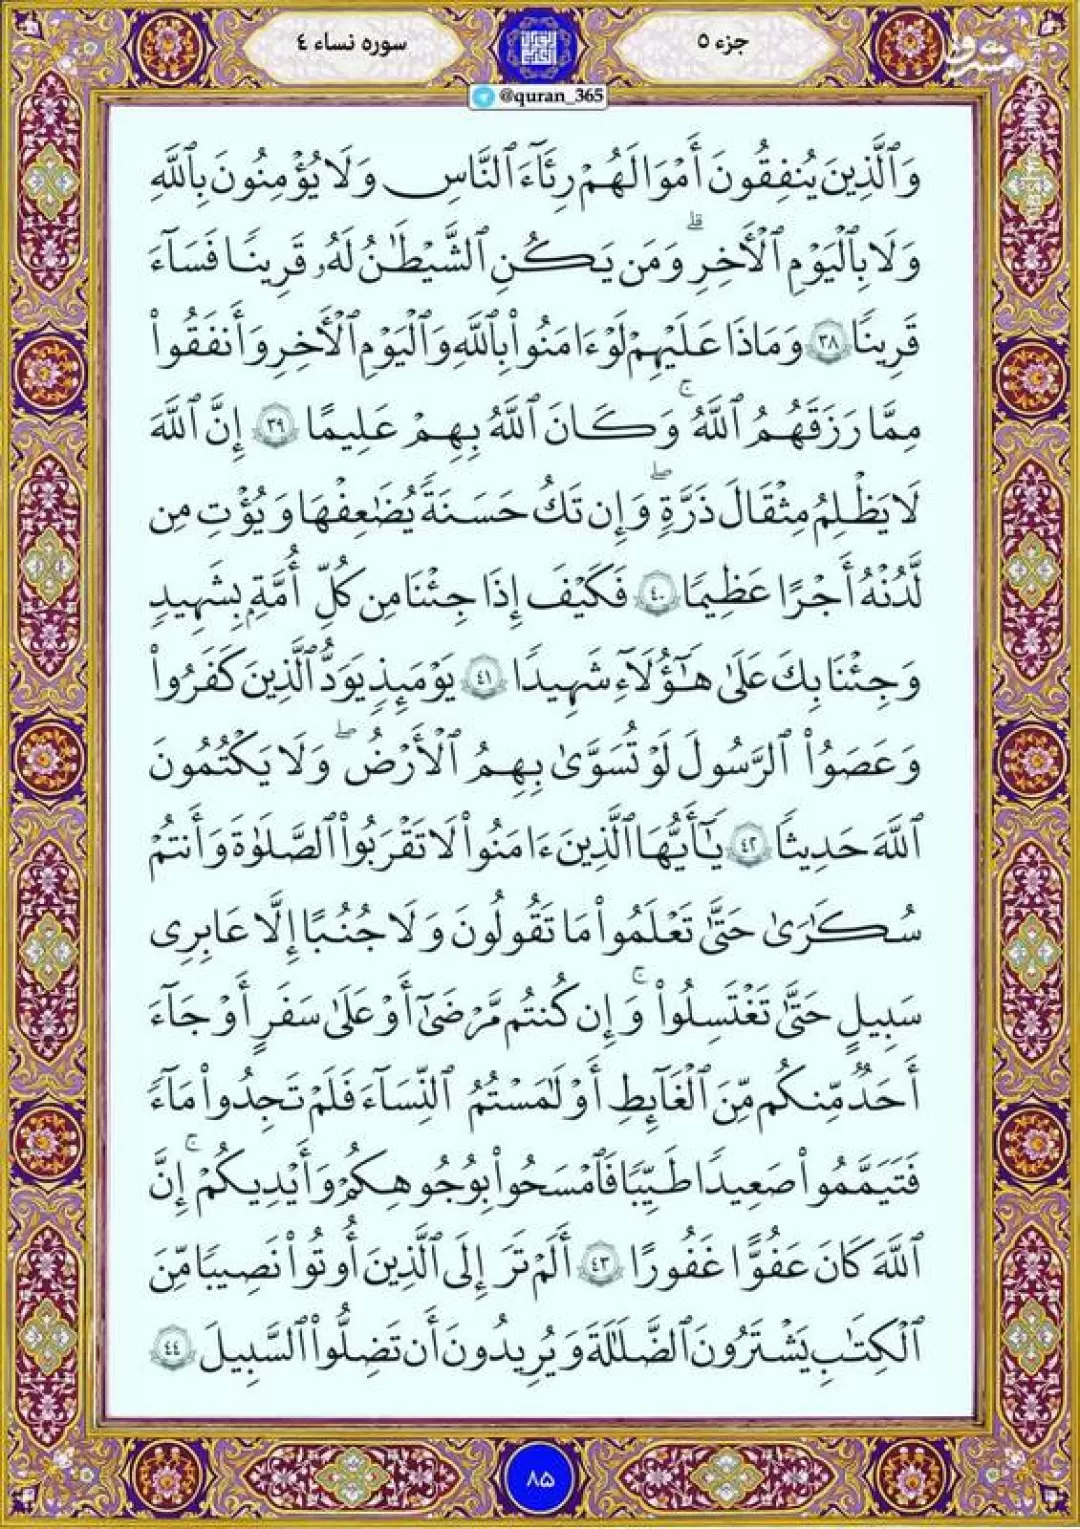 جزء ۵
سوره نساء ٤
مشرق
@quran_365
وَٱلَّذِينَ يُنفِقُونَ أَمْوَٰلَهُمْ رِئَآءَ ٱلنَّاسِ وَلَا يُؤْمِنُونَ بِٱللَّهِ
وَلَا بِٱلْيَوْمِ ٱلْأَخِرِ ۗ وَمَن يَكُنِ ٱلشَّيْطَٰنُ لَهُۥ قَرِينًا فَسَآءَ
قَرِينًا ٣٨ وَمَاذَا عَلَيْهِمْ لَوْ ءَامَنُوا۟ بِٱللَّهِ وَٱلْيَوْمِ ٱلْأَخِرِ وَأَنفَقُوا۟
مِمَّا رَزَقَهُمُ ٱللَّهُ ۚ وَكَانَ ٱللَّهُ بِهِمْ عَلِيمًا ٣٩ إِنَّ ٱللَّهَ
لَا يَظْلِمُ مِثْقَالَ ذَرَّةٍ ۖ وَإِن تَكُ حَسَنَةً يُضَٰعِفْهَا وَيُؤْتِ مِن
لَّدُنْهُ أَجْرًا عَظِيمًا ٤٠ فَكَيْفَ إِذَا جِئْنَا مِن كُلِّ أُمَّةٍۭ بِشَهِيدٍ
وَجِئْنَا بِكَ عَلَىٰ هَٰٓؤُلَآءِ شَهِيدًا ٤١ يَوْمَئِذٍ يَوَدُّ ٱلَّذِينَ كَفَرُوا۟
وَعَصَوُا۟ ٱلرَّسُولَ لَوْ تُسَوَّىٰ بِهِمُ ٱلْأَرْضُ ۖ وَلَا يَكْتُمُونَ
ٱللَّهَ حَدِيثًا ٤٢ يَٰٓأَيُّهَا ٱلَّذِينَ ءَامَنُوا۟ لَا تَقْرَبُوا۟ ٱلصَّلَوٰةَ وَأَنتُمْ
سُكَٰرَىٰ حَتَّىٰ تَعْلَمُوا۟ مَا تَقُولُونَ وَلَا جُنُبًا إِلَّا عَابِرِى
سَبِيلٍ حَتَّىٰ تَغْتَسِلُوا۟ ۚ وَإِن كُنتُم مَّرْضَىٰٓ أَوْ عَلَىٰ سَفَرٍ أَوْ جَآءَ
أَحَدٌ مِّنكُم مِّنَ ٱلْغَآئِطِ أَوْ لَٰمَسْتُمُ ٱلنِّسَآءَ فَلَمْ تَجِدُوا۟ مَآءً
فَتَيَمَّمُوا۟ صَعِيدًا طَيِّبًا فَٱمْسَحُوا۟ بِوُجُوهِكُمْ وَأَيْدِيكُمْ ۚ إِنَّ
ٱللَّهَ كَانَ عَفُوًّا غَفُورًا ٤٣ أَلَمْ تَرَ إِلَى ٱلَّذِينَ أُوتُوا۟ نَصِيبًا مِّنَ
ٱلْكِتَٰبِ يَشْتَرُونَ ٱلضَّلَٰلَةَ وَيُرِيدُونَ أَن تَضِلُّوا۟ ٱلسَّبِيلَ ٤٤
۸۵